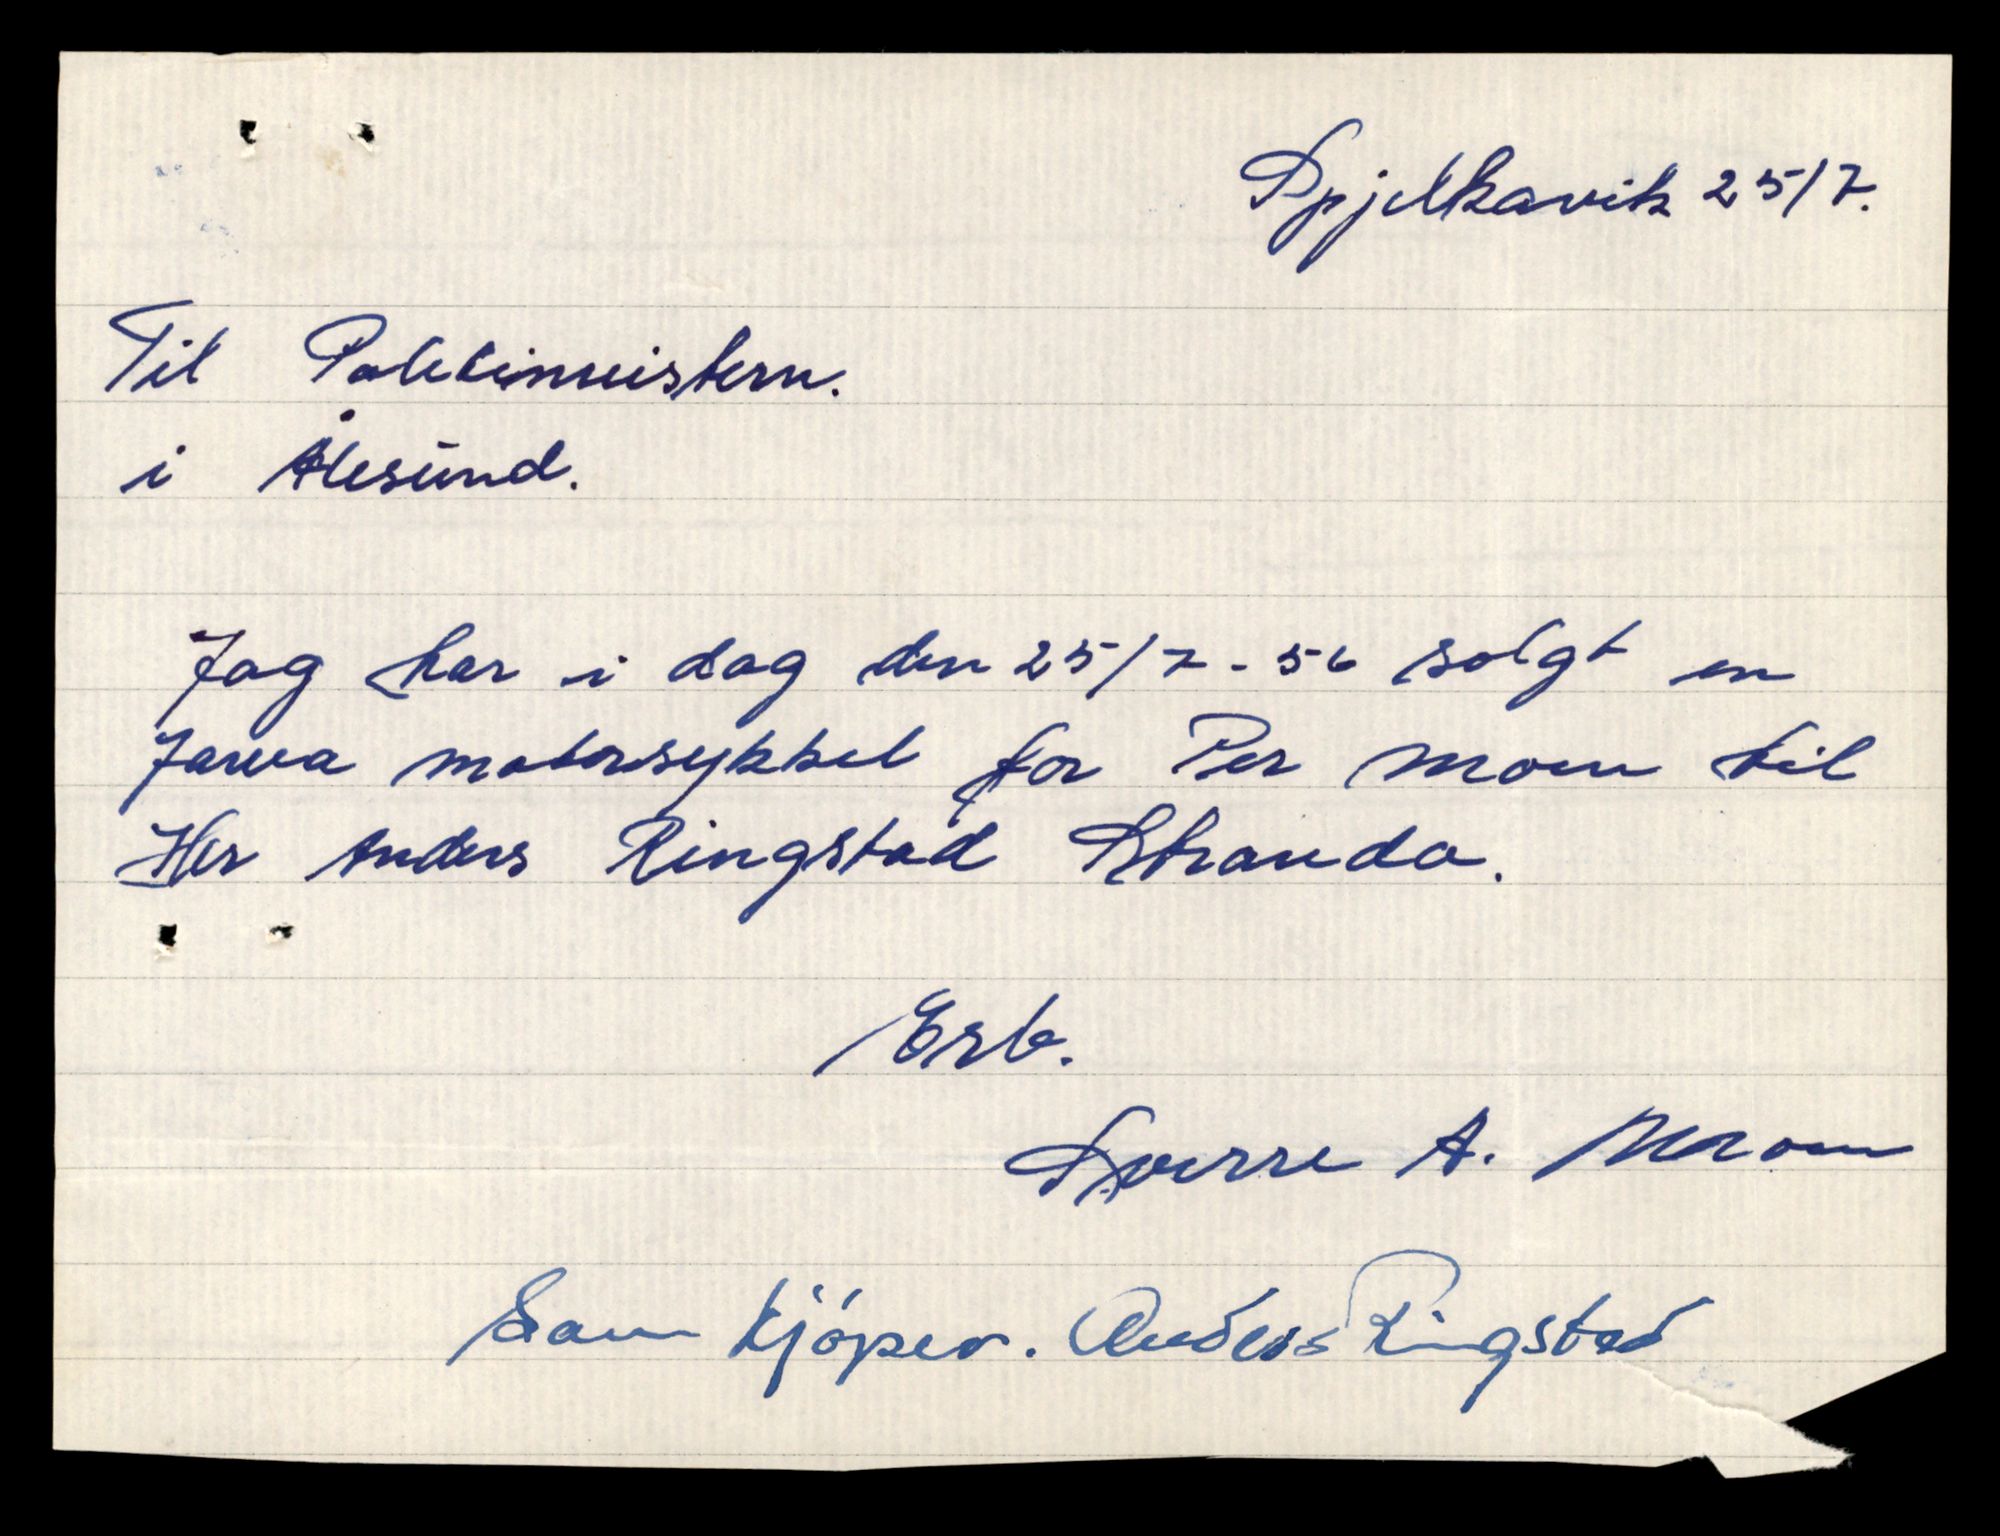 Spjelkavik 25/7.
Til Politimeistern.
i Ålesund.
Jag har i dag den 25/7-56 solgt en
Jawa motorsykkel for Per Moen til
Her Anders Ringstad Stranda.
Erb.
Sverre A. Moen
Som kjöper. Anders Ringstad